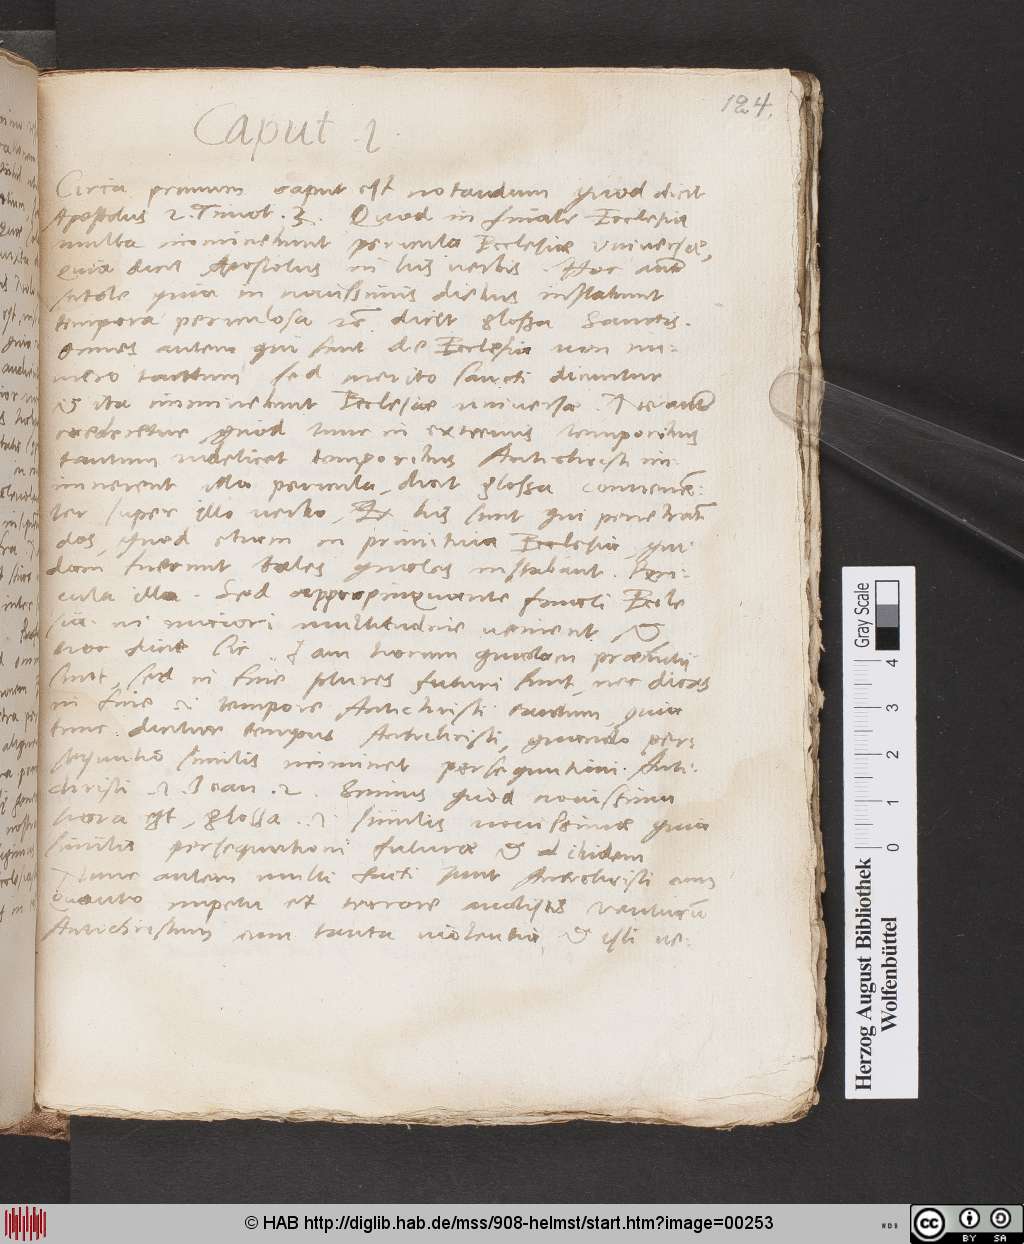 124.
Caput 1
Circa primum caput est notandum quod dicit
Apostolus 2. Timot. 3. Quod in finale Ecclesia
multa imminebunt pericula Ecclesiæ vniversæ,
Quia dicit Apostolus in his verbis. Hoc aut
scitote quia in nouissimis diebus instabunt
tempora periculosa dicit glossa
omnes autem qui sunt de Ecclesia non nu-
mero tantum sed merito sancti dicuntur
& ita imminebunt Ecclesiæ universæ. Ne aut
crederetur quod tunc in extremis temporibus
tantum videlicet temporibus Antichristi im-
minerent illa pericula, dicit glossa
ter super illo verbo, Ex his sunt qui penetrant
dos, quod etiam in primitiua Ecclesia, qui-
dam fuerunt tales instabant. Peri-
cula illa. Sed appropinquante Eccle
siæ in maiori multitudine uenient, &
hoc dicit sic. Iam horum quidam
sunt, sed in fine plures futuri sunt, nec dicas
in fine .i. tempore Antichristi tantum, quia
tunc dicitur tempus Antichristi, quando per-
sequutio similis imminet persequutioni Anti-
christi .1. Joan. 2. quod nouissima
hora est, glossa .i. similis nouissimæ quia
similis persequutioni futuræ & ibidem
Nunc autem multi facti sunt Antichristi cum
quanto impetu et terrore auditis venturum
Antichristum cum tanta uiolentia, & isti ue-
Gray Scale
0 1 2 3 4
Herzog August Bibliothek
Wolfenbüttel
© HAB http://diglib.hab.de/mss/908-helmst/start.htm?image=00253
WDB
cc BY SA